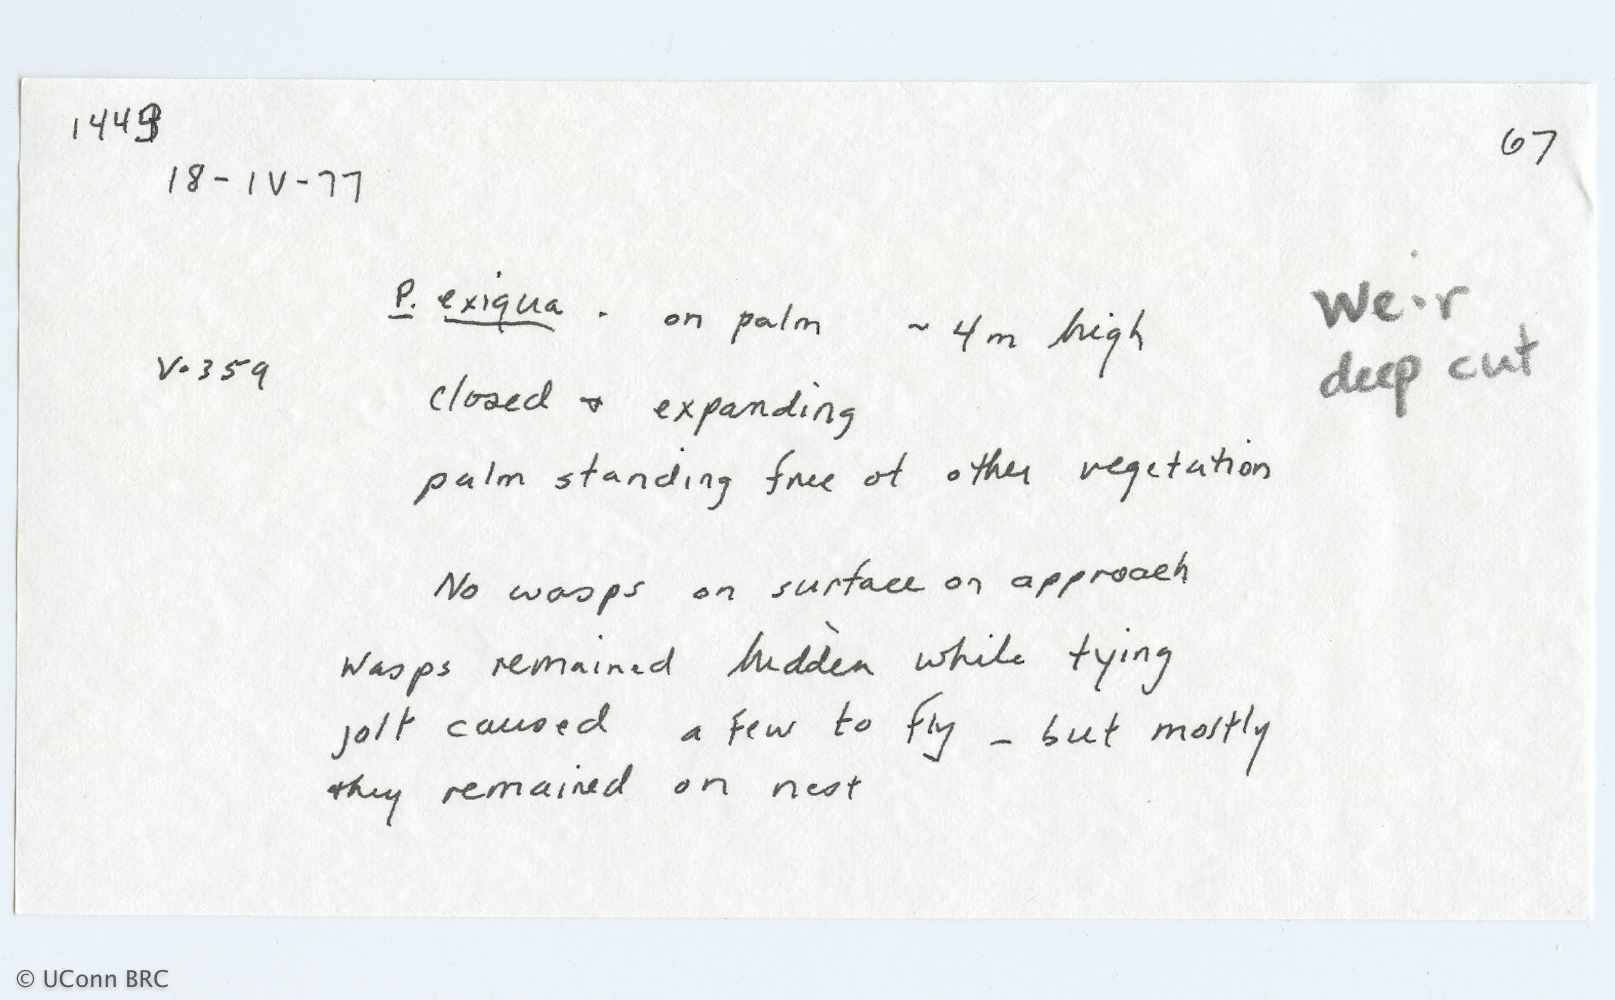 67
18-IV-77
P. exiqua . on palm ~ 4m high
Weir
deep cut
V.359
closed + expanding
palm standing free of other vegetation
No wasps on surface on approach
Wasps remained hidden while tying
jolt caused a few to fly - but mostly
they remained on nest
© UConn BRC